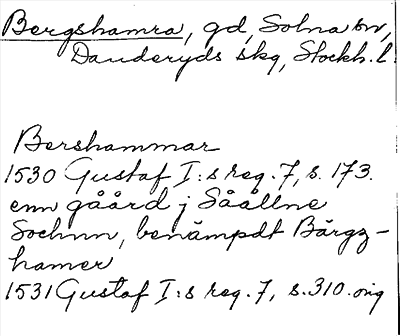 Bergshamra, gd, Solna sn,
Danderyds skg, Stockh. l.
Bershammar
1530 Gustaf I:s reg. 7, s. 173.
enn gåård j Såållne
Sochnn, benämpdt Bärgz-
hamer
1531 Gustaf I:s reg. 7, s. 310. orig